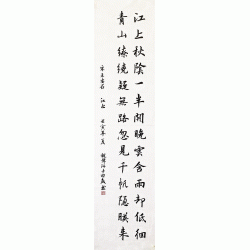 江上秋陰一半開晚雲含雨却低徊
青山繚繞疑無路忽見千帆隱映來
宋王安石 江上 壬寅年夏